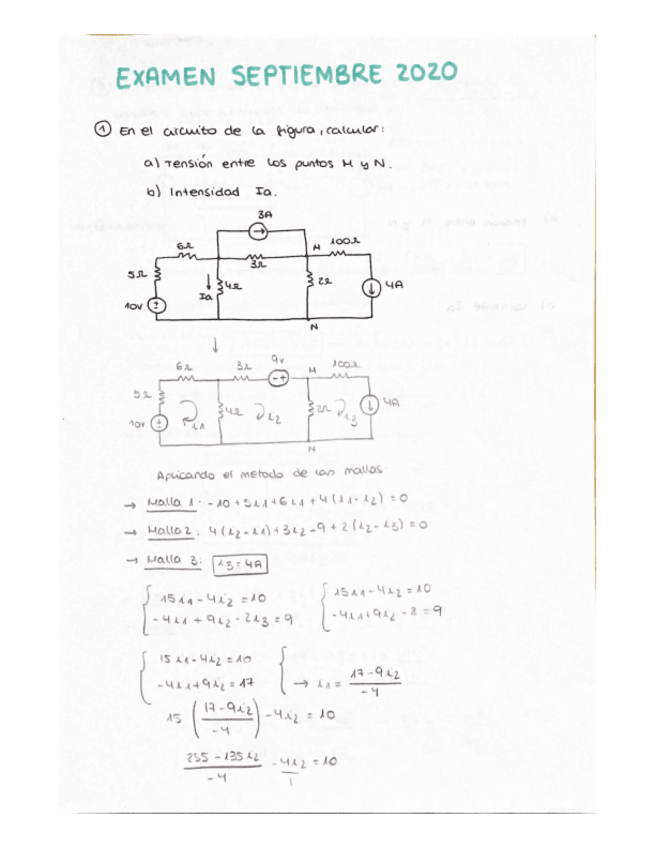 EXAMEN SEPTIEMBRE 2020
① En el circuito de la figura, calcular:
a) Tensión entre los puntos M y N.
b) Intensidad Ia.
3A
6Ω
3Ω
M
100Ω
5Ω
Ia
4Ω
2Ω
4A
10V
N
↓
6Ω
3Ω
9v
M
100Ω
5Ω
10v
i1
4Ω
i2
2Ω
i3
4A
N
Aplicando el método de las mallas:
→ Malla 1: -10+5i1+6i1+4(i1-i2)=0
→ Malla 2: 4(i2-i1)+3i2-9+2(i2-i3)=0
→ Malla 3: i3=4A
{ 15i1-4i2=10
-4i1+9i2-2i3=9
{ 15i1-4i2=10
-4i1+9i2-8=9
{ 15i1-4i2=10
-4i1+9i2=17
{ → i1= 17-9i2 / -4
15 ( 17-9i2 / -4 ) -4i2 = 10
255-135i2 / -4 - 4i2 / 1 = 10